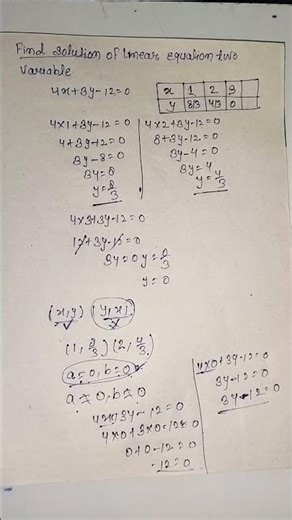 Find solution of linear equation two
variable
4x+3y-12=0
x 1 2 3
y 8/3 4/3 0
4×1+3y-12=0
4+3y-12=0
3y-8=0
3y=8
y=8/3
4×2+3y-12=0
8+3y-12=0
3y-4=0
3y=4
y=4/3
4×3+3y-12=0
12+3y-12=0
3y=0 y=0/3
y=0
(x,y) (y,x)
(1, 8/3) (2, 4/3)
a=0, b=0
a≠0, b≠0
4x+3y-12=0
4×0+3×0-12=0
0+0-12=0
-12=0
4×0+3y-12=0
3y-12=0
3y-12=0